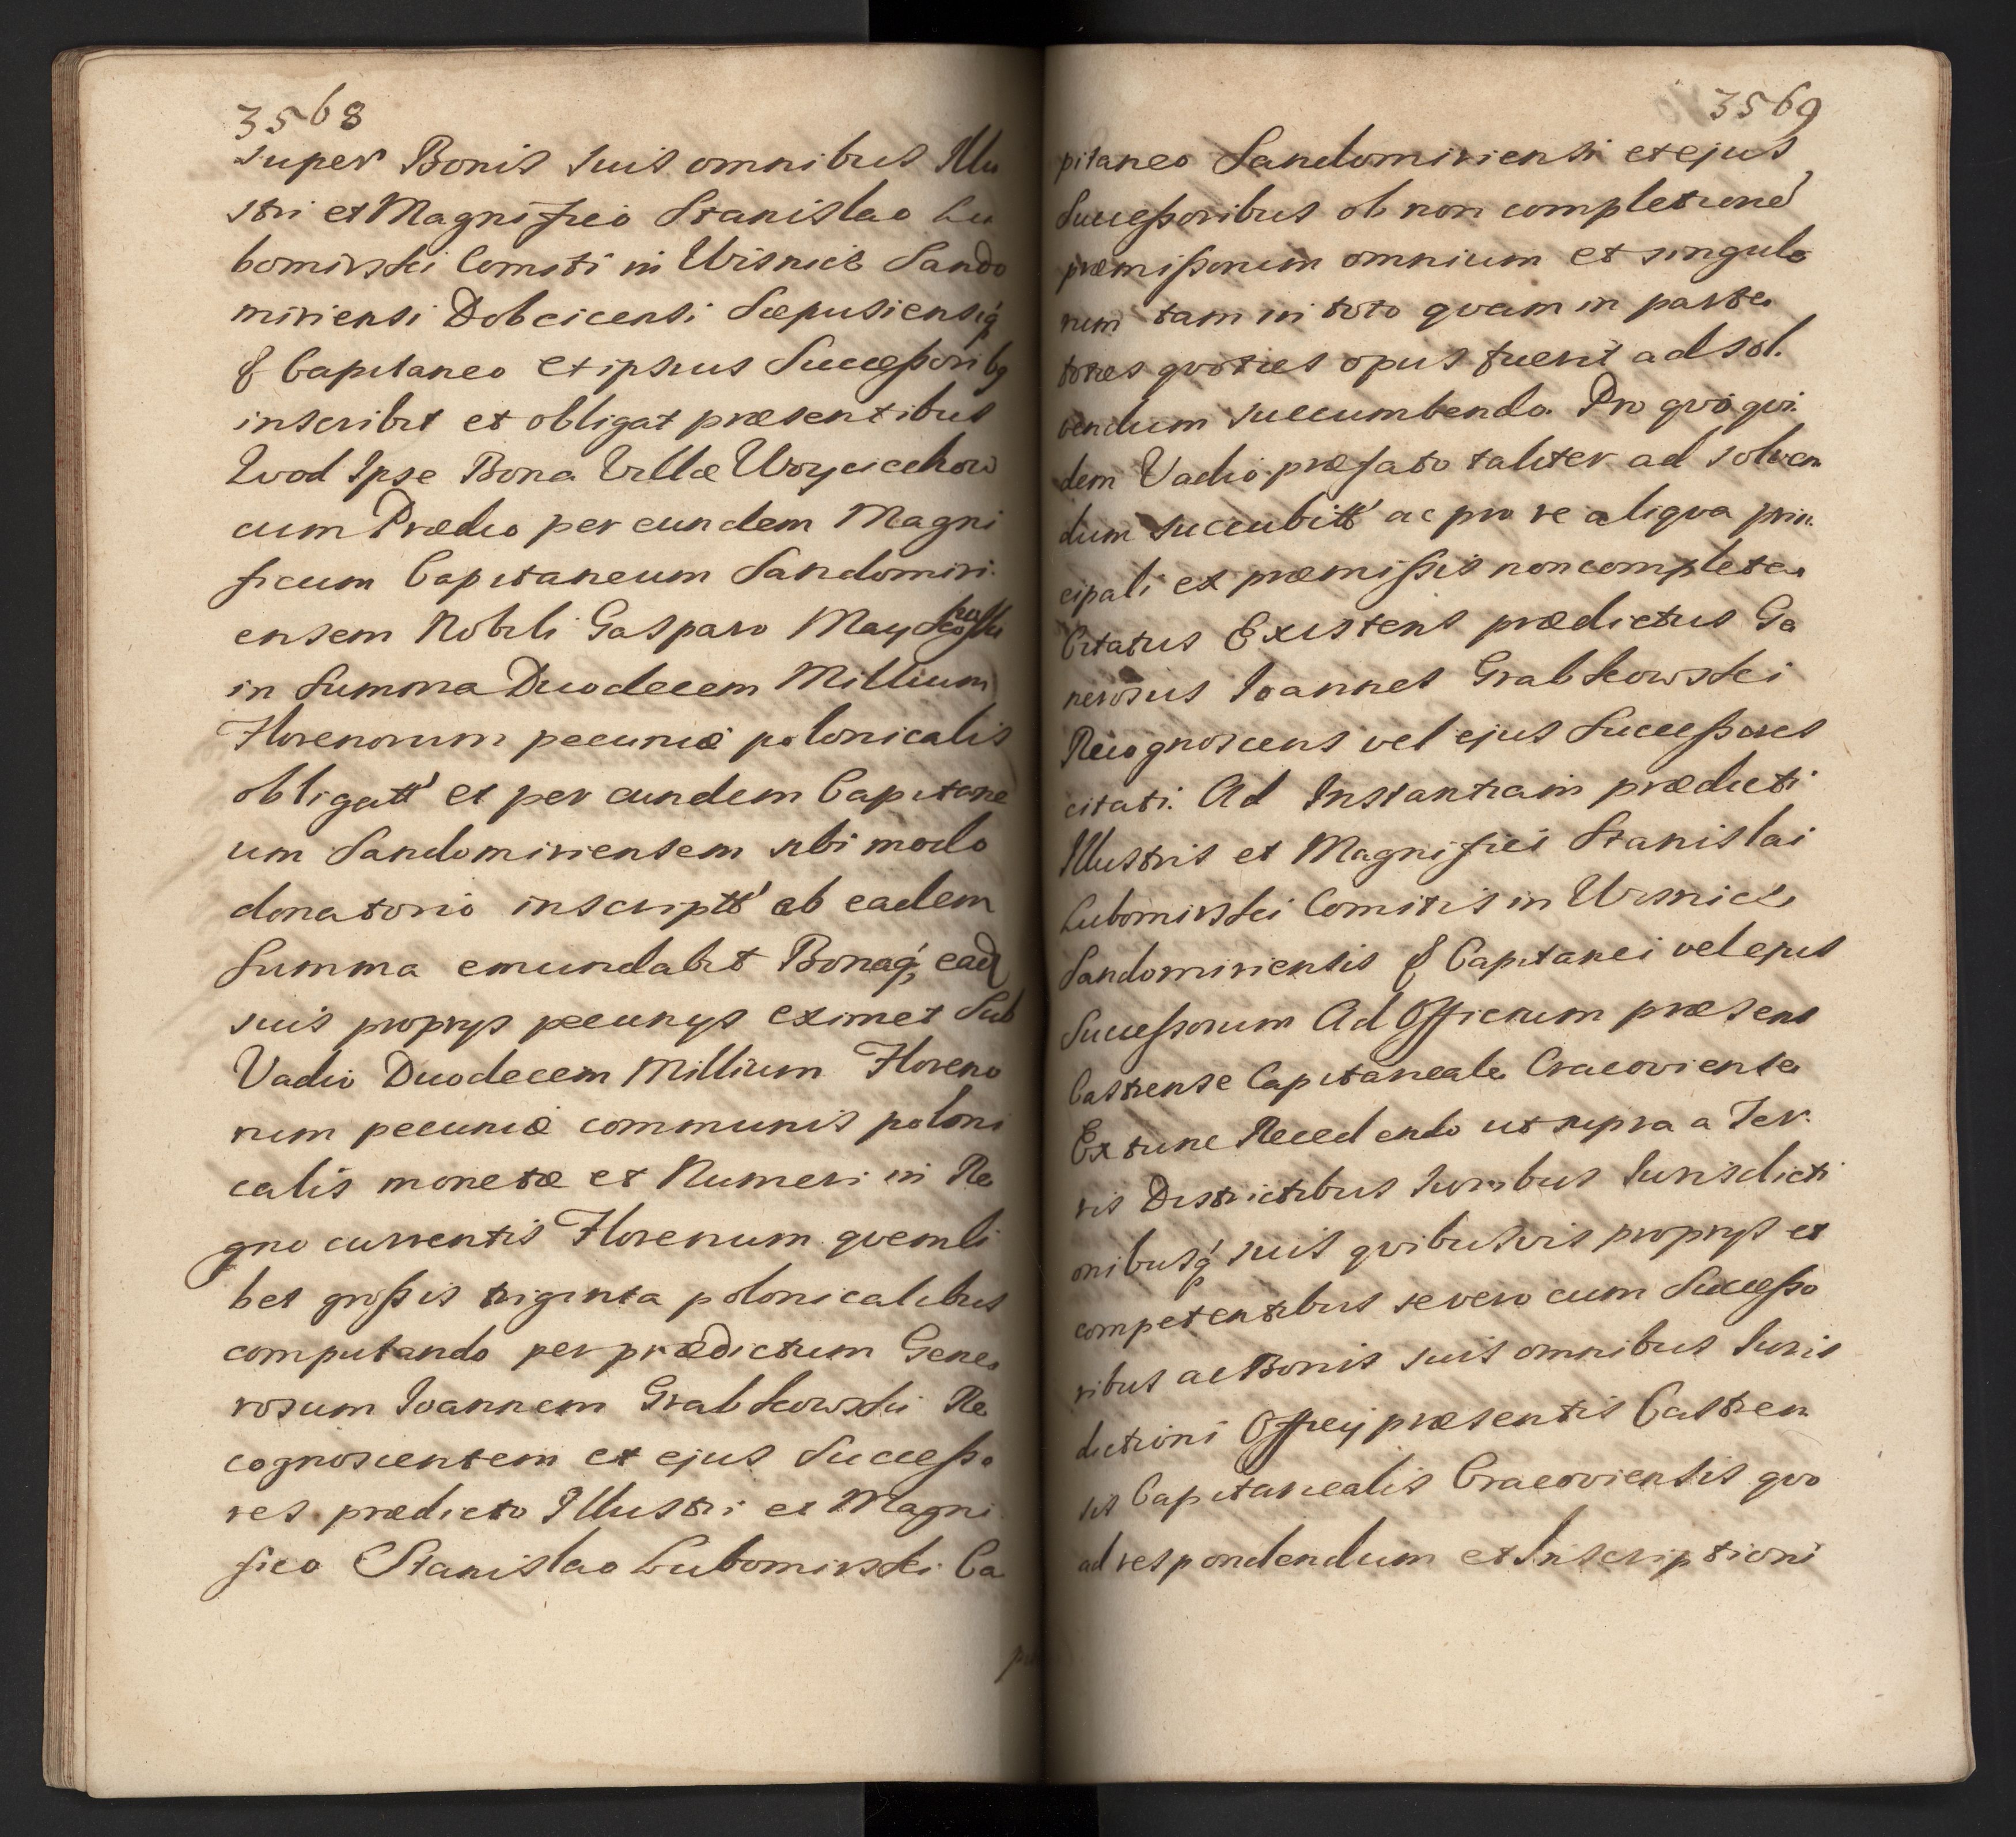 3568
super Bonis suis omnibus Illu
stri et Magnifico Stanislao Lu
bomirski Comiti in Wisnicz Sando
miriensi Dobcicensi Scepusiensiq
& Capitaneo et ipsius Successoribq
inscribit et obligat præsentibus
Qvod Ipse Bona Villæ Woycicchow
cum Prædio per eundem Magni
ficum Capitaneum Sandomiri.
ensem Nobili Gasparo
in Summa Duodecem Millium
Florenorum pecuniæ polonicalis
obligatt' et per eundem Capitane
um Sandomiriensem sibi modo
donatorio inscriptt' ab eadem
Summa emundabit Bonaq; ead
suis proprys pecunys eximet Sub
Vadio Duodecem Millium Floreno
rum pecuniæ communis poloni
calis monetæ et Numeri in Re
gno currentis Florenum quemli
bet grossis triginta polonicalibus
computando per prædictum Gene
rosum Ioannem Grabkowski Re
cognoscentem et ejus Successo
res prædicto Illustri et Magni
fico Stanislao Lubomirski Ca
3569
pitaneo Sandomiriensi et ejus
Successoribus ob non completione
præmissorum omnium et singulo
rum tam in toto qvam in parte
toties qvoties opus fuerit ad sol.
vendum succumbendo. Pro qvo qvi.
dem Vadio præfato taliter ad solven
dum succubitt' ac pro re aliqva prin.
cipali ex præmissis non completa
Citatus Existens prædictus Ge
nerosus Ioannes Grabkowski
Recognoscens vel ejus Successores
citati. Ad Instantiam prædicti
Illustris et Magnifici Stanislai
Lubomirski Comitis in Wisnicz
Sandomiriensis & Capitanei vel ejus
Successorum Ad Officium præsens
Castrense Capitaneale Cracoviense
Ex tunc Recedendo ut supra a Ter.
ris Districtibus Iuribus Iurisdicti
onibusq suis qvibusvis proprys et
competentibus se vero cum Successo
ribus ac Bonis suis omnibus Iuris
dictioni Officij præsentis Castren
sis Capitanealis Cracoviensis qvo
ad respondendum et Inscriptioni